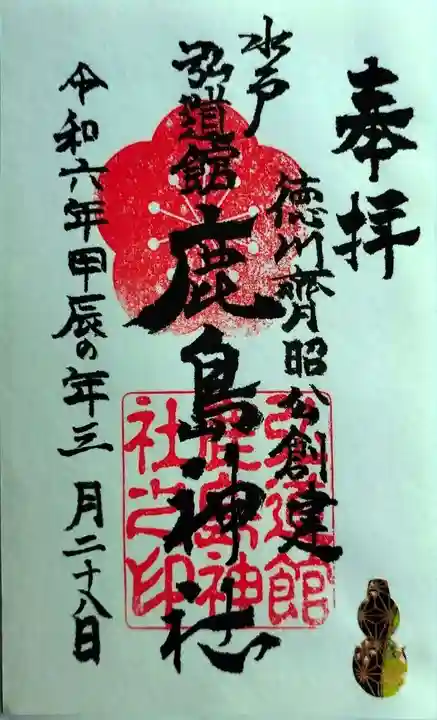 奉拝
徳川齊昭公創建
水戸
弘道館
鹿島神社
令和六年甲辰の年三月二十八日
弘道館
鹿島神
社之印